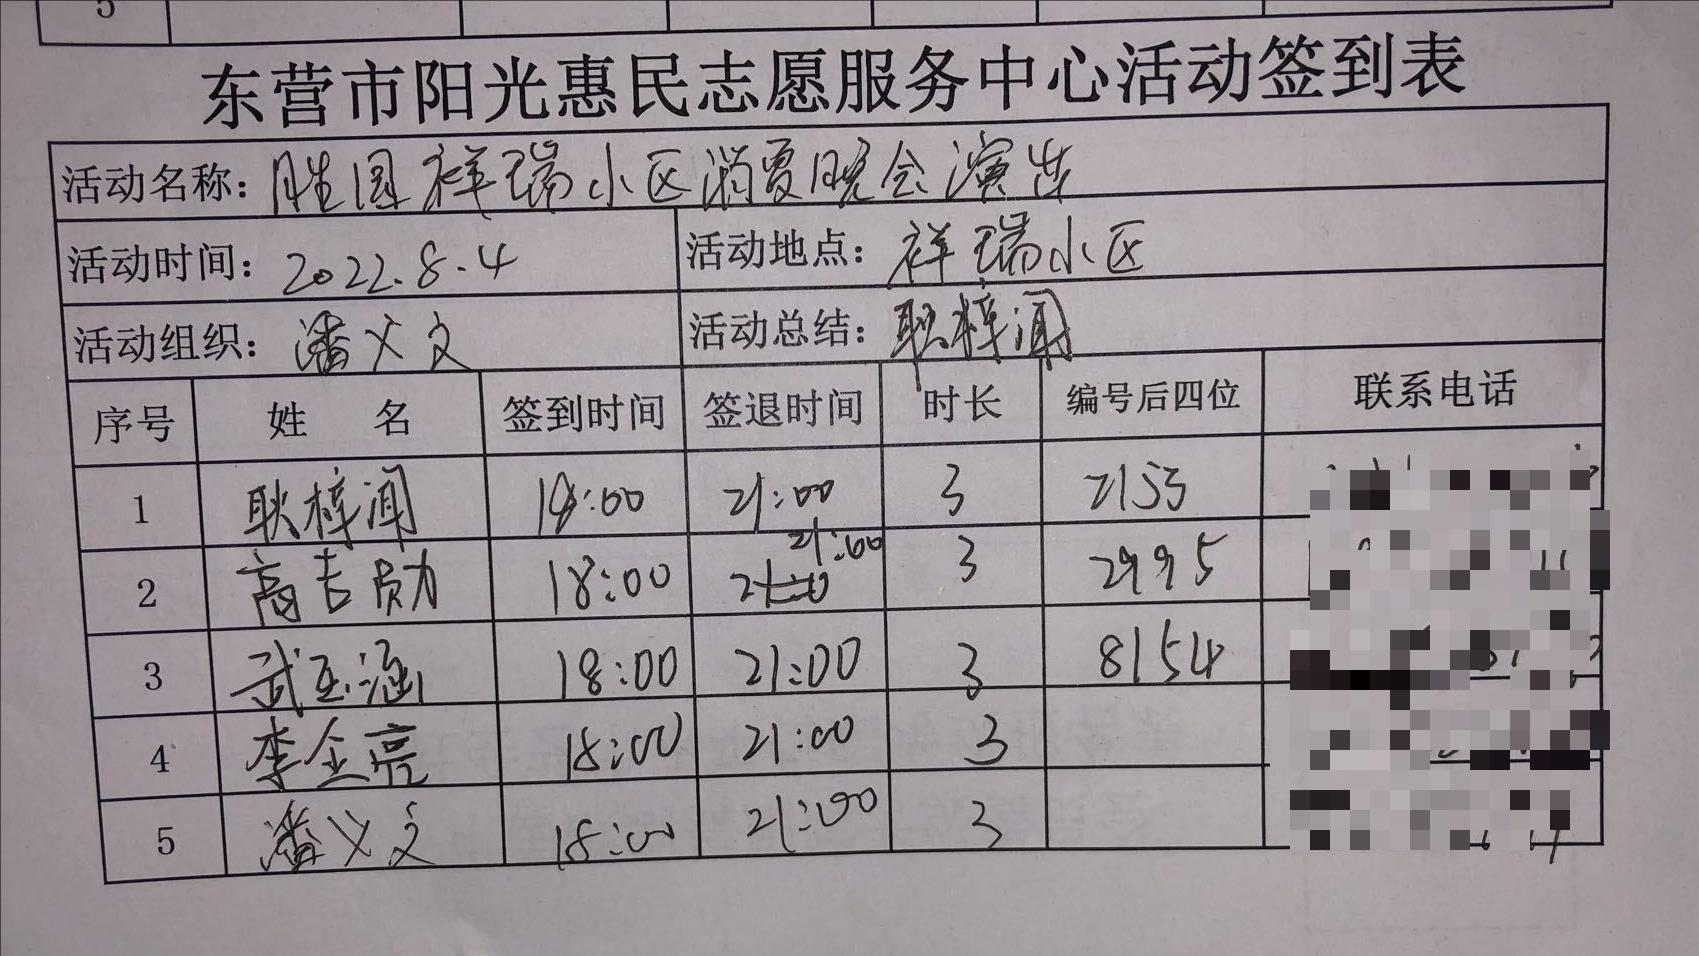 5
东营市阳光惠民志愿服务中心活动签到表
活动名称：胜园祥瑞小区消夏晚会演出
活动时间：2022.8.4 活动地点：祥瑞小区
活动组织：潘义文 活动总结：耿梓闻
序号 姓 名 签到时间 签退时间 时长 编号后四位 联系电话
1 耿梓闻 18:00 21:00 3 2153
21:00
2 高 18:00 3 2995
3 武玉涵 18:00 21:00 3 8154
4 李全亮 18:00 21:00 3
5 潘义文 18:00 21:00 3